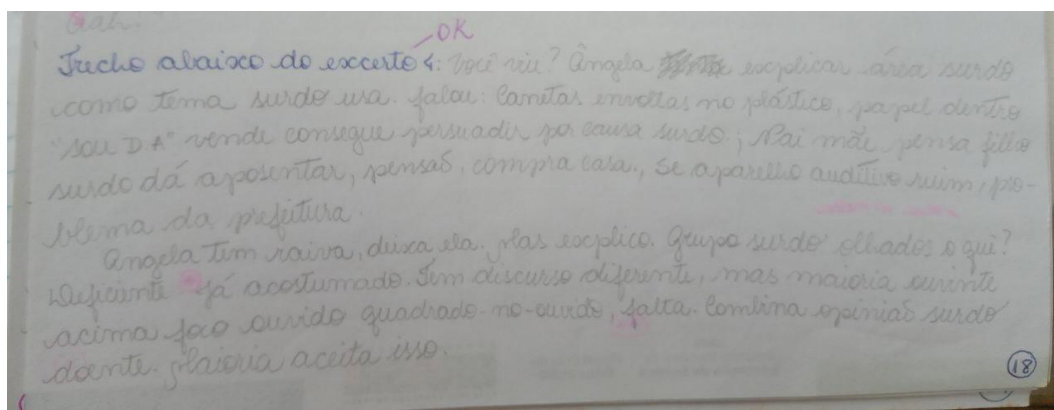 OK
Trecho abaixo do excerto 4: Você viu? Ângela explicar área surdo
como tema surdo usa. falou: Canetas envoltas no plástico, papel dentro
"sou DA" vende consegue persuadir por causa surdo; Pai mãe pensa filho
surdo dá aposentar, pensão, compra casa., se aparelho auditivo ruim, pro-
blema da prefeitura.
Angela tem raiva, deixa ela. Mas explico. Grupo surdo olhados o quê?
Deficiente já acostumado. Tem discurso diferente, mas maioria ouvinte
acima foco ouvido quadrado-no-ouvido, falta. Combina opinião surdo
doente. Maioria aceita isso.
18